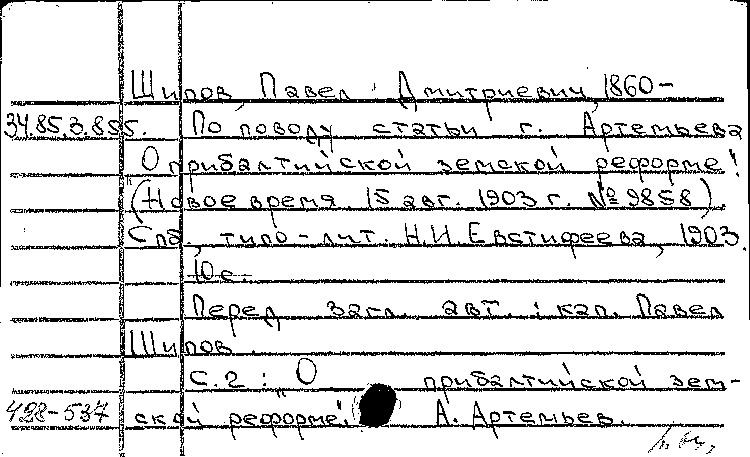 Шипов, Павел Дмитриевич, 1860-
34.85.3.855. По поводу статьи г. Артемьева
О прибалтийской земской реформе!
"(Новое время 15 авг. 1903 г. № 9858).
Спб., типо-лит. Н.И. Евстифеева, 1903.
10 с.
Перед загл. авт.: кап. Павел
Шипов.
С.2: "О прибалтийской зем-
428-537 ской реформе". А. Артемьев.